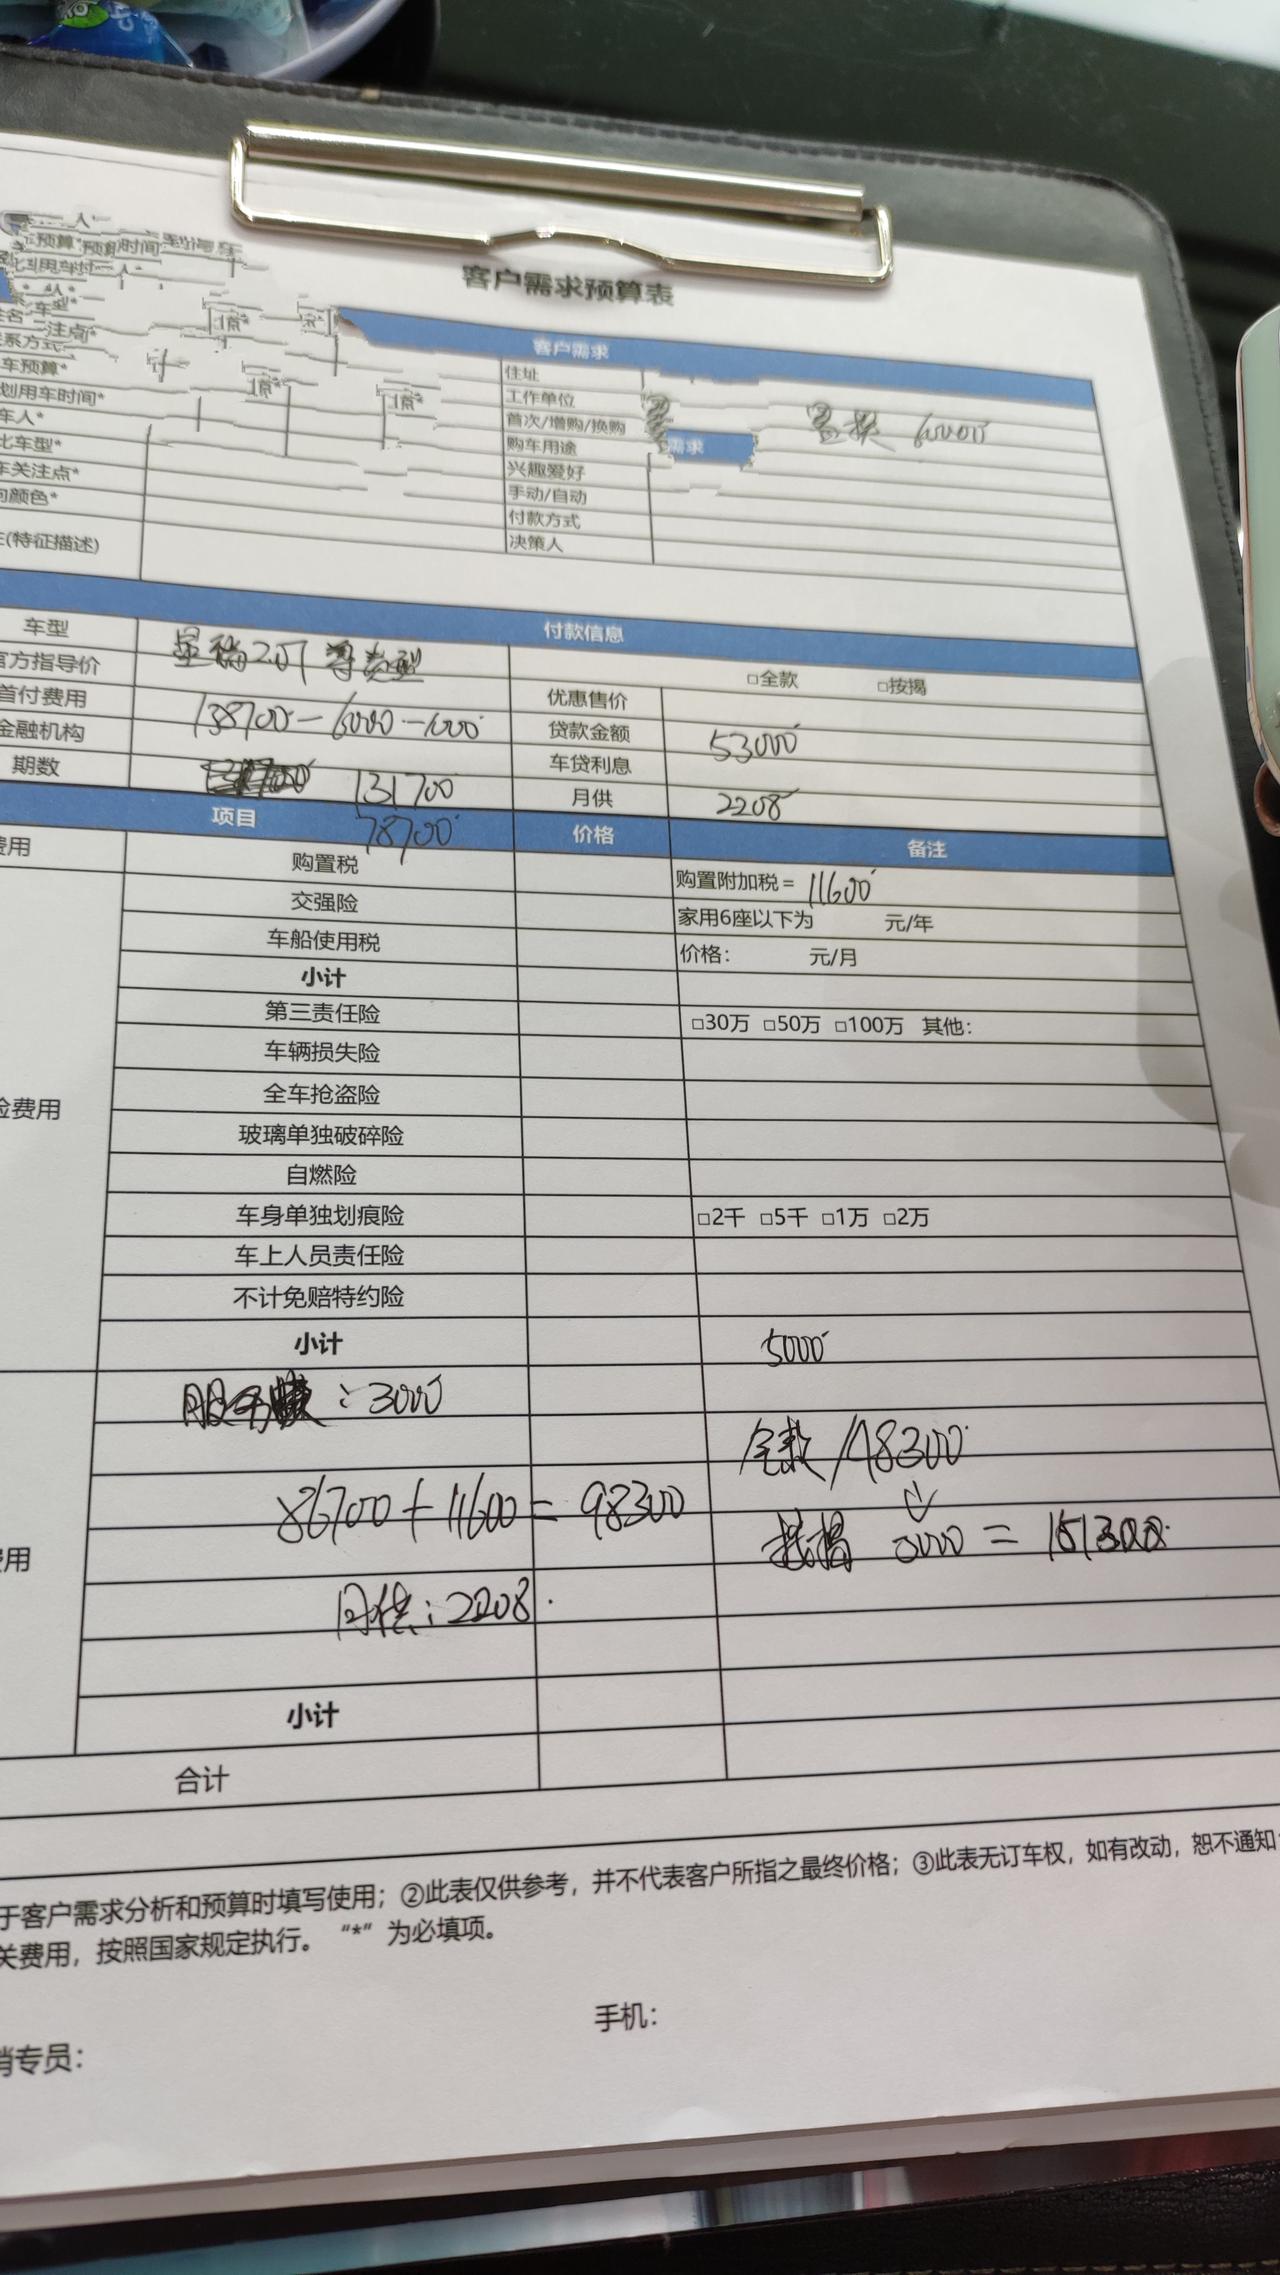 客户需求预算表
客户需求
预算* 预算时间
车型*
注点*
系方式
车预算*
划用车时间*
车人*
比车型*
车关注点*
向颜色*
注(特征描述)
住址
工作单位
首次/增购/换购 置换 6000
购车用途 需求
兴趣爱好
手动/自动
付款方式
决策人
付款信息
车型 星瑞 2.0T 尊贵型 □全款 □按揭
官方指导价 优惠售价
首付费用 138700-6000-1000 贷款金额 53000
金融机构 车贷利息
期数 131700 月供 2208
项目 78700 价格 备注
费用 购置税 购置附加税= 11600
交强险 家用6座以下为 元/年
车船使用税 价格: 元/月
小计
第三责任险 □30万 □50万 □100万 其他:
车辆损失险
全车抢盗险
玻璃单独破碎险
险费用 自燃险
车身单独划痕险 □2千 □5千 □1万 □2万
车上人员责任险
不计免赔特约险
小计 5000
服务费:3000
全款 148300
86700+11600=98300
按揭 3000=151300
费用
月供:2208.
小计
合计
于客户需求分析和预算时填写使用;②此表仅供参考,并不代表客户所指之最终价格;③此表无订车权,如有改动,恕不通知;
关费用,按照国家规定执行。“*”为必填项。
手机:
销专员: